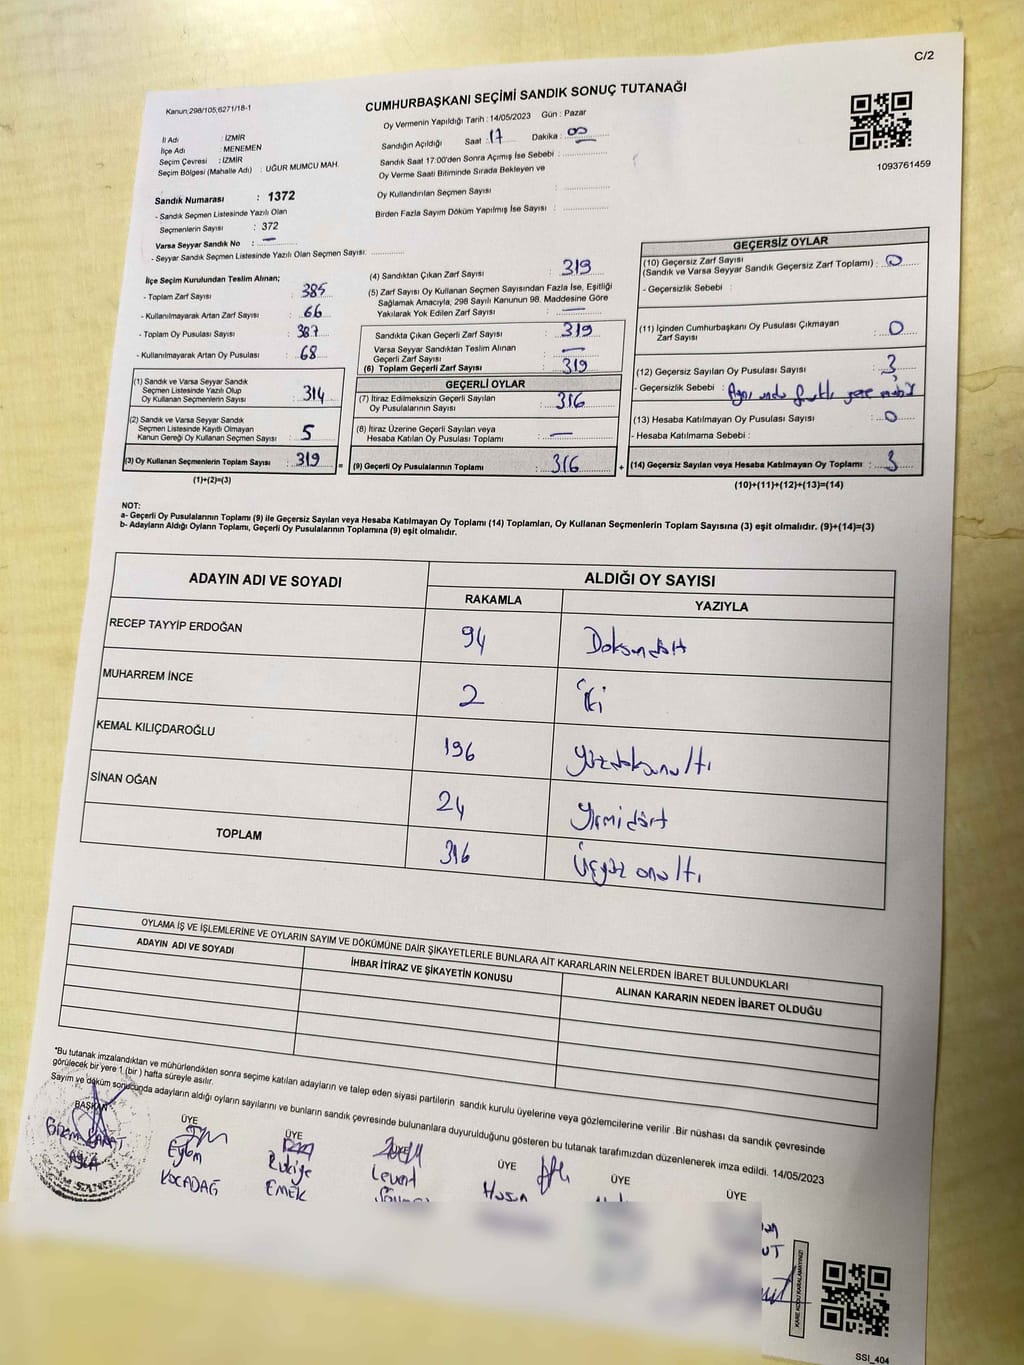 C/2
Kanun;298/105;6271/18-1
CUMHURBAŞKANI SEÇİMİ SANDIK SONUÇ TUTANAĞI
Oy Vermenin Yapıldığı Tarih : 14/05/2023 Gün : Pazar
İl Adı : İZMİR
İlçe Adı : MENEMEN
Seçim Çevresi : İZMİR
Seçim Bölgesi (Mahalle Adı) : UĞUR MUMCU MAH.
Sandık Numarası : 1372
- Sandık Seçmen Listesinde Yazılı Olan
Seçmenlerin Sayısı : 372
Varsa Seyyar Sandık No : —
- Seyyar Sandık Seçmen Listesinde Yazılı Olan Seçmen Sayısı:
Sandığın Açıldığı Saat : 17 Dakika : 00
Sandık Saat 17:00'den Sonra Açımış İse Sebebi :
Oy Verme Saati Bitiminde Sırada Bekleyen ve
Oy Kullandırılan Seçmen Sayısı :
Birden Fazla Sayım Döküm Yapılmış İse Sayısı :
1093761459
İlçe Seçim Kurulundan Teslim Alınan;
- Toplam Zarf Sayısı : 385
- Kullanılmayarak Artan Zarf Sayısı : 66
- Toplam Oy Pusulası Sayısı : 387
- Kullanılmayarak Artan Oy Pusulası : 68
(1) Sandık ve Varsa Seyyar Sandık
Seçmen Listesinde Yazılı Olup
Oy Kullanan Seçmenlerin Sayısı : 314
(2) Sandık ve Varsa Seyyar Sandık
Seçmen Listesinde Kayıtlı Olmayan
Kanun Gereği Oy Kullanan Seçmen Sayısı : 5
(3) Oy Kullanan Seçmenlerin Toplam Sayısı : 319 =
(1)+(2)=(3)
(4) Sandıktan Çıkan Zarf Sayısı : 319
(5) Zarf Sayısı Oy Kullanan Seçmen Sayısından Fazla İse, Eşitliği
Sağlamak Amacıyla, 298 Sayılı Kanunun 98. Maddesine Göre
Yakılarak Yok Edilen Zarf Sayısı : —
Sandıkta Çıkan Geçerli Zarf Sayısı : 319
Varsa Seyyar Sandıktan Teslim Alınan
Geçerli Zarf Sayısı : —
(6) Toplam Geçerli Zarf Sayısı : 319
GEÇERLİ OYLAR
(7) İtiraz Edilmeksizin Geçerli Sayılan
Oy Pusulalarının Sayısı : 316
(8) İtiraz Üzerine Geçerli Sayılan veya
Hesaba Katılan Oy Pusulası Toplamı : —
(9) Geçerli Oy Pusulalarının Toplamı : 316 +
GEÇERSİZ OYLAR
(10) Geçersiz Zarf Sayısı
(Sandık ve Varsa Seyyar Sandık Geçersiz Zarf Toplamı) : 0
- Geçersizlik Sebebi :
(11) İçinden Cumhurbaşkanı Oy Pusulası Çıkmayan
Zarf Sayısı : 0
(12) Geçersiz Sayılan Oy Pusulası Sayısı : 3
- Geçersizlik Sebebi : Aynı anda farklı yere mühür
(13) Hesaba Katılmayan Oy Pusulası Sayısı : 0
- Hesaba Katılmama Sebebi :
(14) Geçersiz Sayılan veya Hesaba Katılmayan Oy Toplamı : 3
(10)+(11)+(12)+(13)=(14)
NOT:
a- Geçerli Oy Pusulalarının Toplamı (9) ile Geçersiz Sayılan veya Hesaba Katılmayan Oy Toplamı (14) Toplamları, Oy Kullanan Seçmenlerin Toplam Sayısına (3) eşit olmalıdır. (9)+(14)=(3)
b- Adayların Aldığı Oyların Toplamı, Geçerli Oy Pusulalarının Toplamına (9) eşit olmalıdır.
ADAYIN ADI VE SOYADI ALDIĞI OY SAYISI
RAKAMLA YAZIYLA
RECEP TAYYİP ERDOĞAN 94 Doksandört
MUHARREM İNCE 2 İki
KEMAL KILIÇDAROĞLU 196 yüzdoksanaltı
SİNAN OĞAN 24 Yirmidört
TOPLAM 316 Üçyüz onaltı
OYLAMA İŞ VE İŞLEMLERİNE VE OYLARIN SAYIM VE DÖKÜMÜNE DAİR ŞİKAYETLERLE BUNLARA AİT KARARLARIN NELERDEN İBARET BULUNDUKLARI
ADAYIN ADI VE SOYADI İHBAR İTİRAZ VE ŞİKAYETİN KONUSU ALINAN KARARIN NEDEN İBARET OLDUĞU
*Bu tutanak imzalandıktan ve mühürlendikten sonra seçime katılan adayların ve talep eden siyasi partilerin sandık kurulu üyelerine veya gözlemcilerine verilir .Bir nüshası da sandık çevresinde
görülecek bir yere 1 (bir ) hafta süreyle asılır.
Sayım ve döküm sonucunda adayların aldığı oyların sayılarını ve bunların sandık çevresinde bulunanlara duyurulduğunu gösteren bu tutanak tarafımızdan düzenlenerek imza edildi. 14/05/2023
BAŞKAN ÜYE ÜYE ÜYE ÜYE ÜYE
Gizem
Eylem
KOCADAĞ
Rukiye
EMEK
Levent
KARE KODU KARALAMAYINIZ!
SSI_404